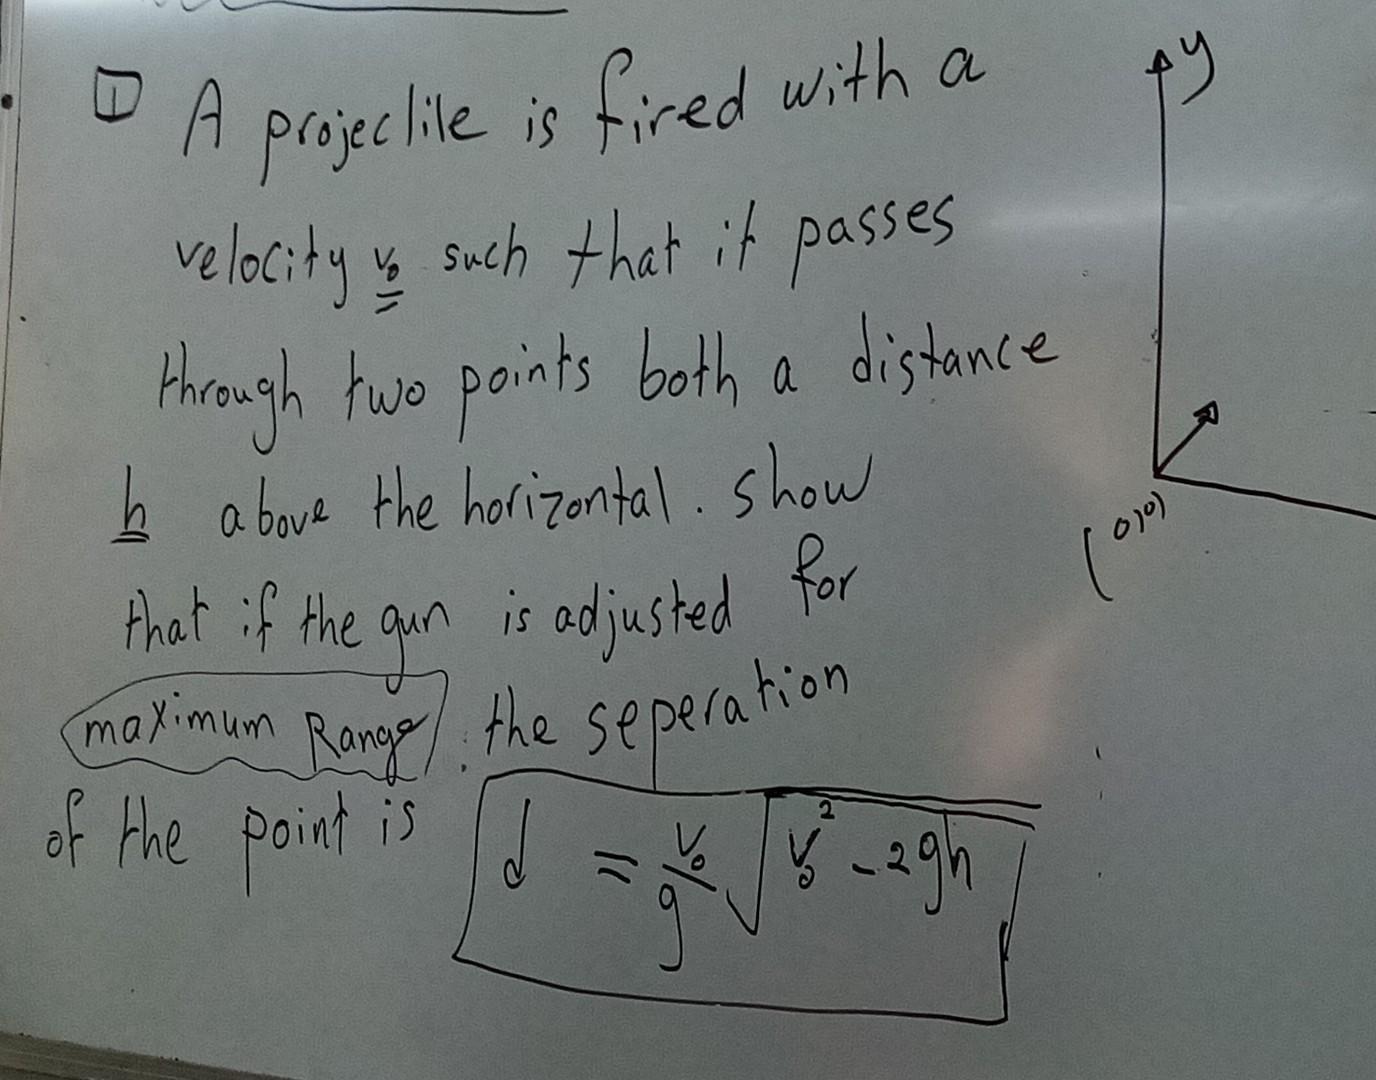 1 A projeclile is fired with a
velocity v₀ such that it passes
through two points both a distance
h above the horizontal. show
that if the gun is adjusted for
maximum Range. the seperation
of the point is d = v₀/g √(v₀² - 2gh)
y
(0,0)